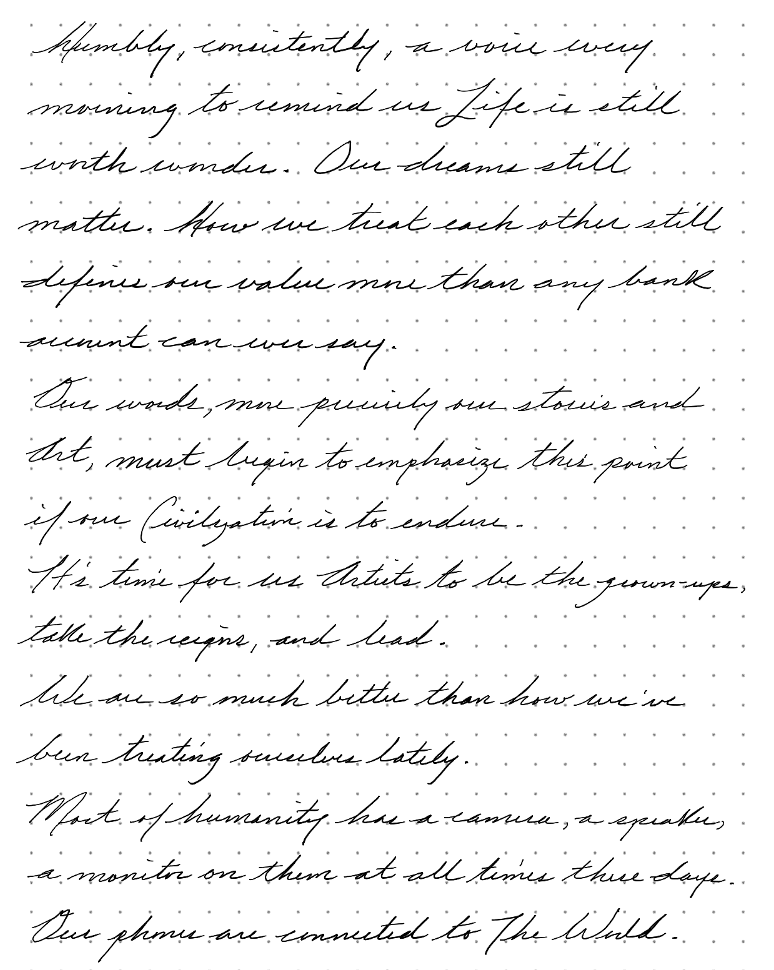 Humbly, consistently, a voice every
morning to remind us Life is still
worth wonder. Our dreams still
matter. How we treat each other still
defines our value more than any bank
account can ever say.
Our words, more precisely our stories and
Art, must begin to emphasize this point
if our Civilization is to endure.
It's time for us Artists to be the grown-ups,
take the reigns, and lead.
We are so much better than how we've
been treating ourselves lately.
Most of humanity has a camera, a speaker,
a monitor on them at all times these days.
Our phones are connected to The World.